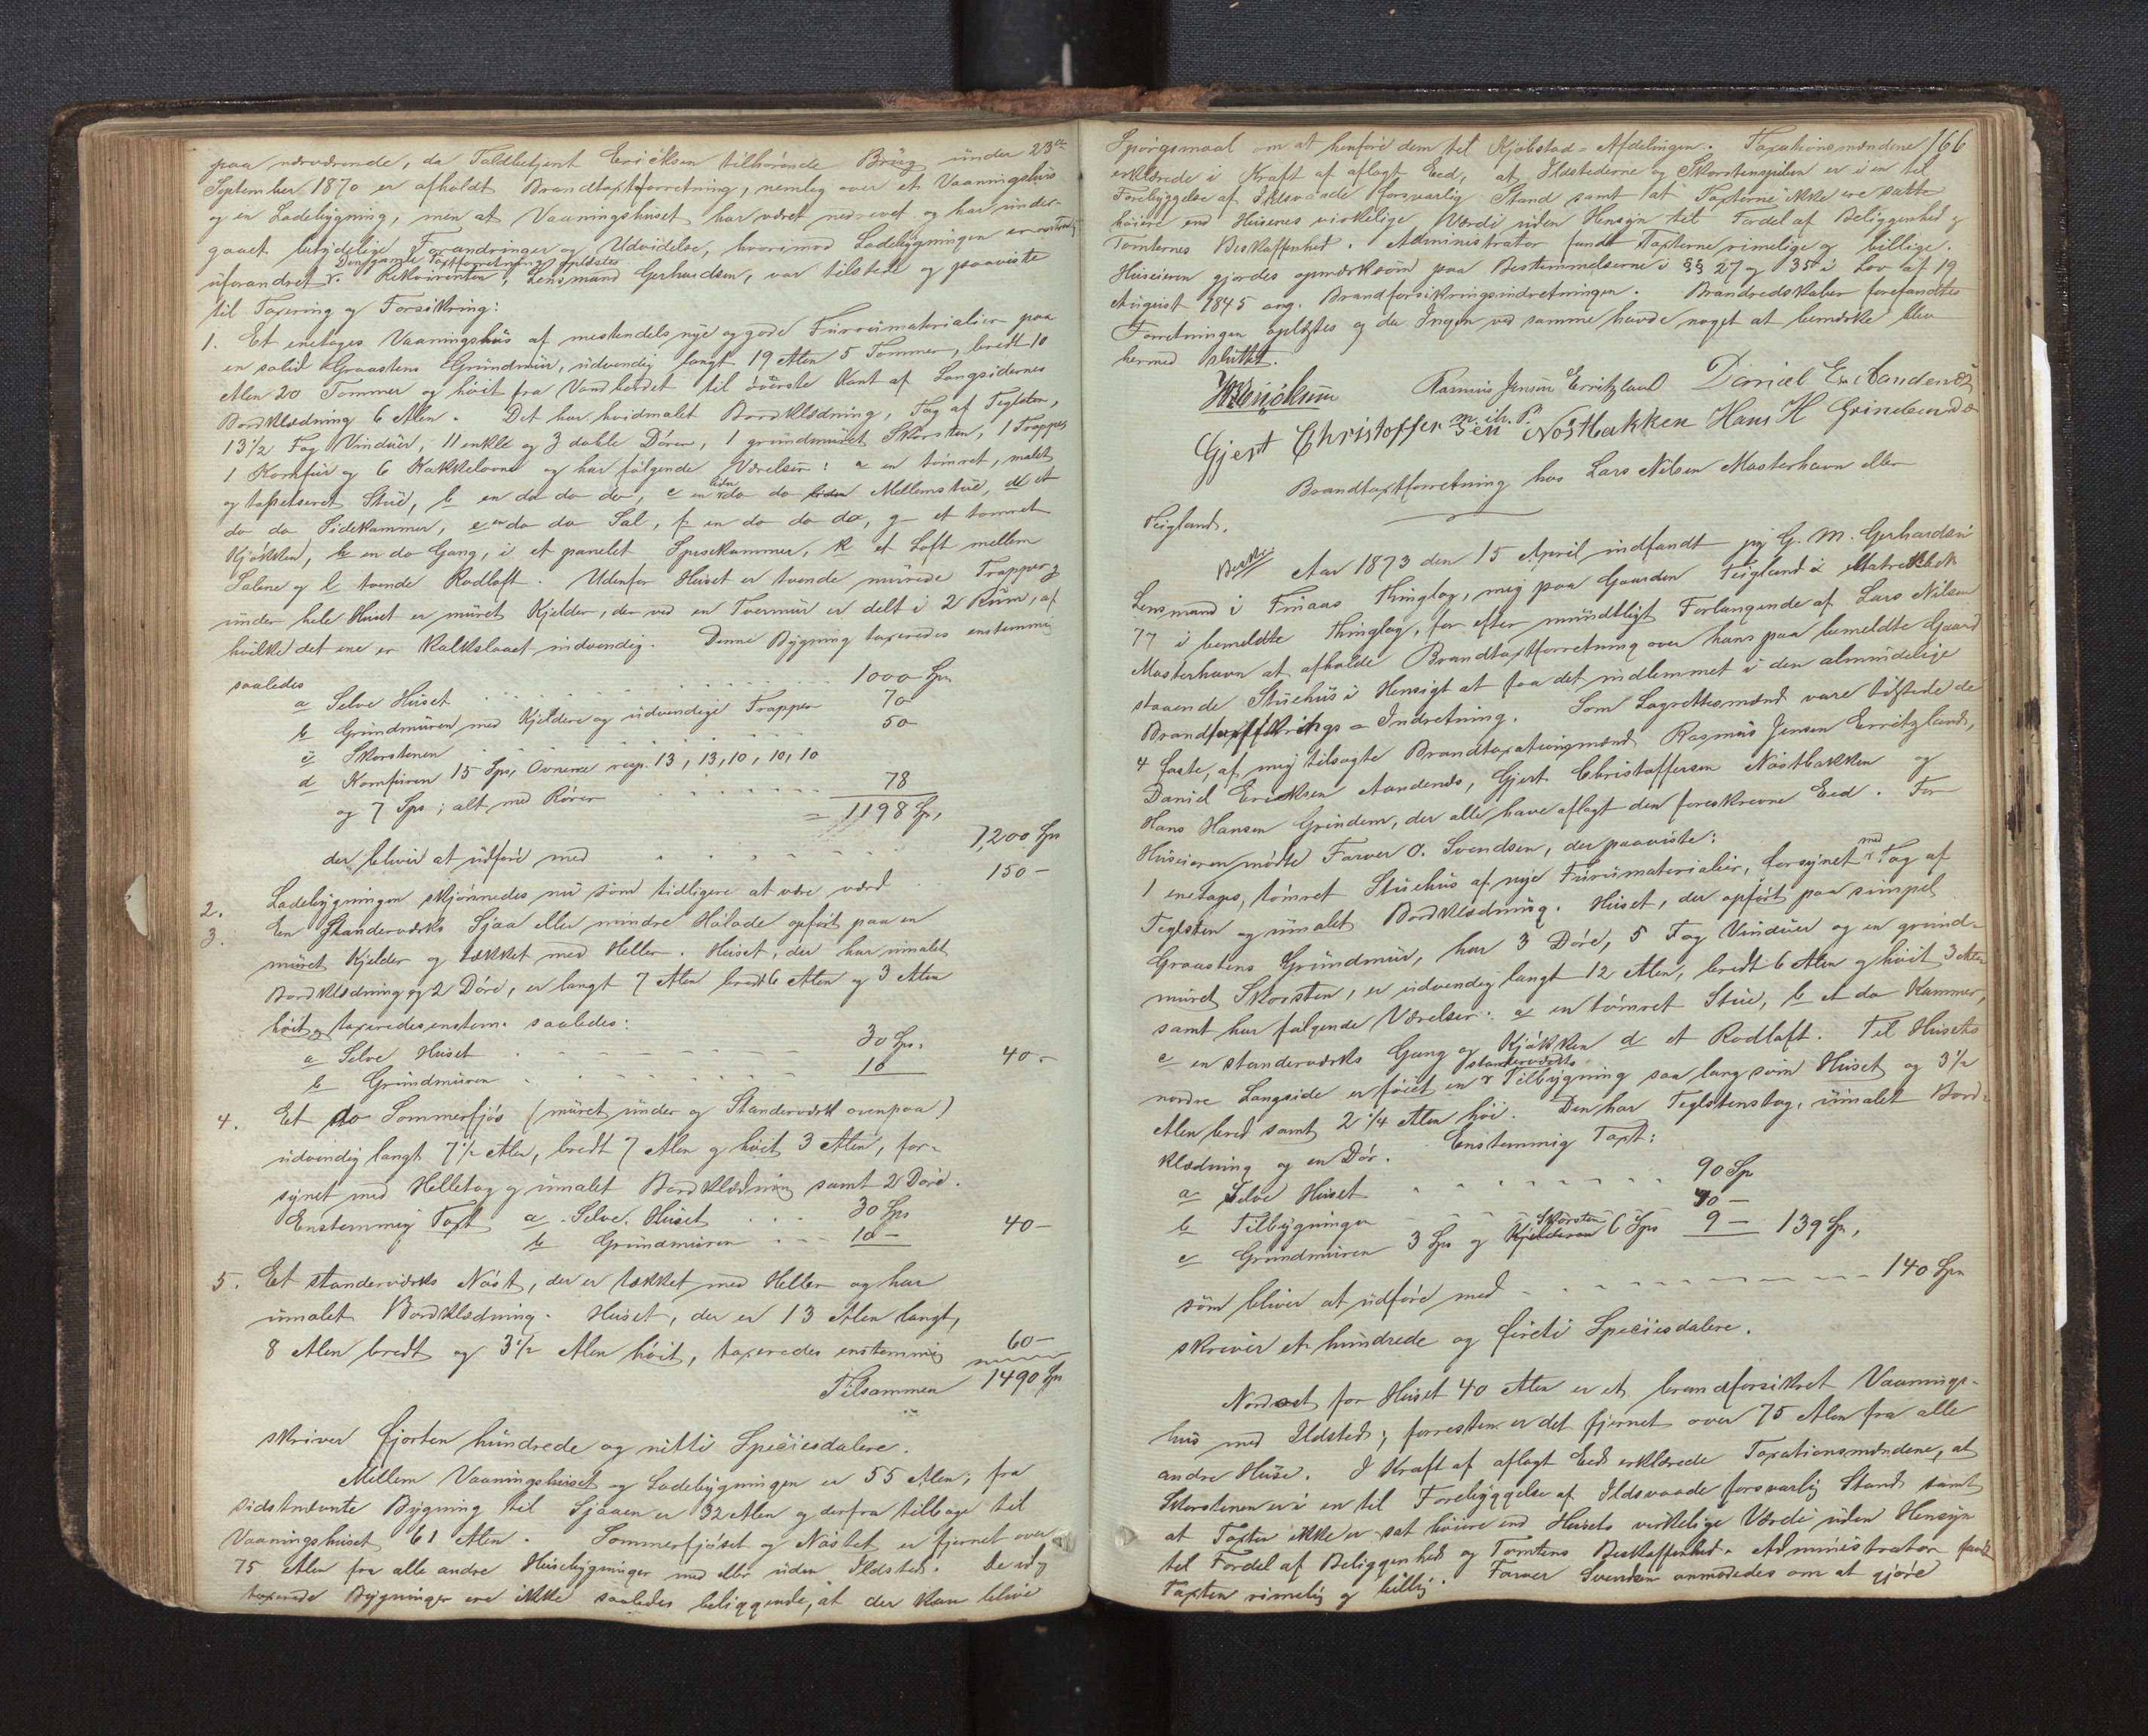 paa nærværende, da Toldbetjent Ericksen tilhørende Brüg ünder 23de
September 1870 er afholdt Brandtaxtforretning, nemlig over et Vaaningshüs
og en Ladebÿgning, men at Vaaningshüset har været nedrevet og har ünder-
gaaet betÿdelige Forandringer og Udvidelse, hvorimod Ladebÿgningen er
Den gamle Taxtforretning oplæstes
üforandret. Rekvirenten, Lensmand Gerhardsen, var tilstede og paaviste
til Taxering og Forsikring:
1. Et enetages Vaaningshüs af mestendels nÿe og gode Fürrümaterialier paa
en solid Graastens Gründmür, üdvendig langt 19 Alen 5 Tommer, bredt 10
Alen 20 Tommer og høit fra Vandbordet til øverste Kant af Langsidernes
Bordklædning 6 Alen. Det har hvidmalet Bordklædning, Tag af Teglsten,
13½ Fag Vindüer, 11 enkle og 3 doble Døre, 1 gründmüret Skorsten, 1 Trappe,
1 Komfür og 6 Kakkelovne og har følgende Værelser: a en tømret, malet
og tapetseret Stüe, b en do do do, c en liden do do Mellemstüe, d et
do do Sidekammer, e en do do Sal, f en do do do, g et tømret
Kjøkken, h en do Gang, i et panelet Spisekammer, k et Loft mellem
Salene og l tvende Rodloft. Udenfor Hüset er tvende mürede Trapper og
ünder hele Hüset er müret Kjelder, der ved en Tvermür er delt i 2 Rüm, af
hvilke det ene er kalkslaaet indvendig. Denne Bÿgning taxeredes enstemmig
saaledes
a Selve Hüset . . . 1000 Spd
b Gründmüren med Kjeldere og üdvendige Trapper 70
c Skorstenen . . . 50
d Komfüren 15 Spd, Ovnene resp. 13, 13, 10, 10, 10
og 7 Spd; alt med Rører . . . 78
= 1198 Spd,
der bliver at üdføre med . . . 1,200 Spd
2. Ladebÿgningen skjønnedes nü som tidligere at være værd . . 150 –
3. En Standerværks Sjaa eller mindre Hølade opført paa en
müret Kjelder og tækket med Heller. Hüset, der har ümalet
Bordklædning og 2 Døre, er langt 7 Alen bredt 6 Alen og 3 Alen
høit og taxeredes enstem. saaledes:
a Selve Hüset . . . 30 Spd.
b Gründmüren . . . 10 40 –
4. Et do Sommerfjøs (müret ünder og Standerværk ovenpaa)
üdvendig langt 7½ Alen, bredt 7 Alen og høit 3 Alen, for-
sÿnet med Helletag og ümalet Bordklædning samt 2 Døre.
Enstemmig Taxt a Selve Hüset . . . 30 Spd
b Gründmüren . . . 10 – 40 –
5. Et standerværks Nøst, der er tækket med Heller og har
ümalet Bordklædning. Hüset, der er 13 Alen langt,
8 Alen bredt og 3½ Alen høit, taxeredes enstemmig 60 –
Tilsammen 1490 Spd
skriver fjorten hündrede og nitti Speciesdalere.
Mellem Vaaningshüset og Ladebÿgningen er 55 Alen; fra
sidstnævnte Bÿgning til Sjaaen er 32 Alen og derfra tilbage til
Vaaningshüset 61 Alen. Sommerfjøset og Nøstet er fjernet over
75 Alen fra alle andre Hüsebÿgninger med eller üden Ildsted. De
taxerede Bÿgninger ere ikke saaledes beliggende, at der kan blive
Spørgsmaal om at henføre dem til Kjøbstad-Afdelingen. Taxationsmændene 166
erklærede i Kraft af aflagt Eed, at Ildstederne og Skorstenspiben er i en til
Forebÿggelse af Ildsvaade forsvarlig Stand samt at Taxterne ikke ere satte
høiere end Hüsenes virkelige Værdi üden Hensÿn til Fordel af Beliggenhed og
Tomternes Beskaffenhed. Administrator fandt Taxterne rimelige og billige.
Hüseieren gjordes opmærksom paa Bestemmelserne i §§ 27 og 35 i Lov af 19
Aügüst 1845 ang. Brandforsikringsindretningen. Brandredskaber forefandtes
Forretningen oplæstes og da Ingen ved samme havde noget at bemærke blev
hermed slüttet.
Rasmüs Jensen Erritzland Daniel Er. Aandenes
m. ih. P.
Gjert Christoffersen Nøstbakken Hans H Grindem
Brandtaxtforretning hos Lars Nilsen Masterhavn eller
Teigland.
Aar 1873 den 15 April indfandt jeg G. M. Gerhardsen
Lensmand i Finaas Thinglag, mig paa Gaarden Teigland i
77 i bemeldte Thinglag, for efter mündtligt Forlangende af Lars Nilsen
Masterhavn at afholde Brandtaxtforretning over hans paa bemeldte Gaard
staaende Stüehüs i Hensigt at faa det indlemmet i den almindelige
Brandforsikrings-Indretning. Som Lagrettesmænd vare tilstede de
4 faste, af mig tilsagte Brandtaxationsmænd Rasmüs Jensen Erritzland,
Daniel Ericksen Aandenes, Gjert Christoffersen Nøstbakken og
Hans Hansen Grindem, der alle have aflagt den foreskrevne Eed. For
Hüseieren mødte Farver O. Svendsen, der paaviste:
1 enetages, tømret Stüehüs af nÿe Fürümaterialier, forsÿnet med Tag af
Teglsten og ümalet Bordklædning. Hüset, der opført paa simpel
Graastens Gründmür, har 3 Døre, 5 Fag Vindüer og en gründ-
müret Skorsten, er üdvendig langt 12 Alen, bredt 6 Alen og høit 3 Alen
samt har følgende Værelser: a en tømret Stüe, b et do Kammer,
c en standerværks Gang og Kjøkken d et Rodloft. Til Hüsets
nordre Langside er føiet en standerværks Tilbÿgning saa lang som Hüset og 3½
Alen bred samt 2¼ Alen høi. Den har Teglstenstag, ümalet Bord-
klædning og en Dør. Enstemmig Taxt:
a Selve Hüset . . . 90 Sp
b Tilbÿgningen . . . 40 –
c Gründmüren 3 Spd og Skorsten 6 Spd 9 – 139 Spd,
som bliver at üdføre med . . . 140 Spd
skriver et hündrede og firti Speciesdalere.
Nordost for Hüset 40 Alen er et brandforsikret Vaanings-
hüs med Ildsted; forresten er det fjernet over 75 Alen fra alle
andre Hüse. I Kraft af aflagt Eed erklærede Taxationsmændene, at
Skorstenen er i en til Forebÿggelse af Ildsvaade forsvarlig Stand samt
at Taxten ikke er sat høiere end Hüsets virkelige Værdi üden Hensÿn
til Fordel af Beliggenhed og Tomtens Beskaffenhed. Administrator fandt
Taxten rimelig og billig. Farver Svendsen anmodedes om at gjøre